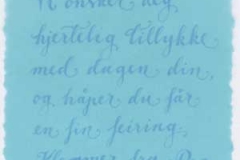 ønsker deg
hjerteleg tillykke
med dagen din,
og håper du får
en fin feiring,
Klemmer fra